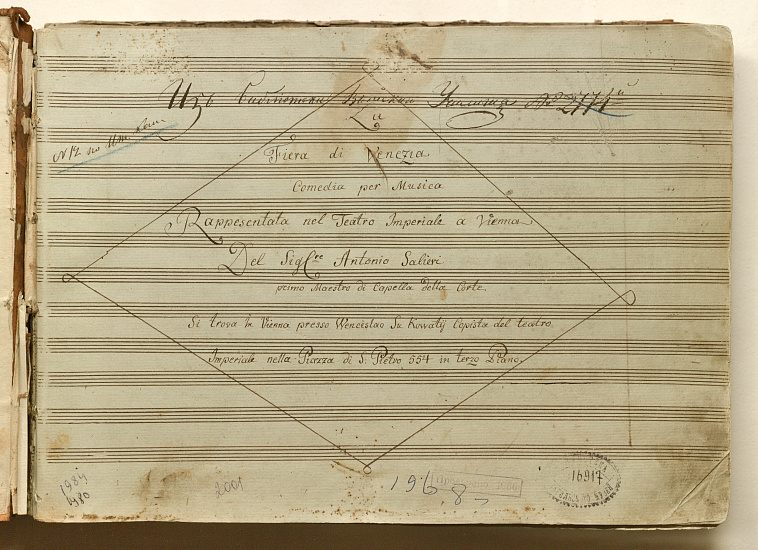 Изъ № 2774
La
Fiera di Venezia.
Comedia per Musica
Rappesentata nel Teatro Imperiale a Vienna
Del Sig:re Antonio Salieri
primo Maestro di Capella della Corte.
Si trova in Vienna presso Wenceslao Su Kowatÿ Copista del teatro
Imperiale nella Piazza di S: Pietro 554 in terzo Piano.
1984
1980
2001
1968
16917